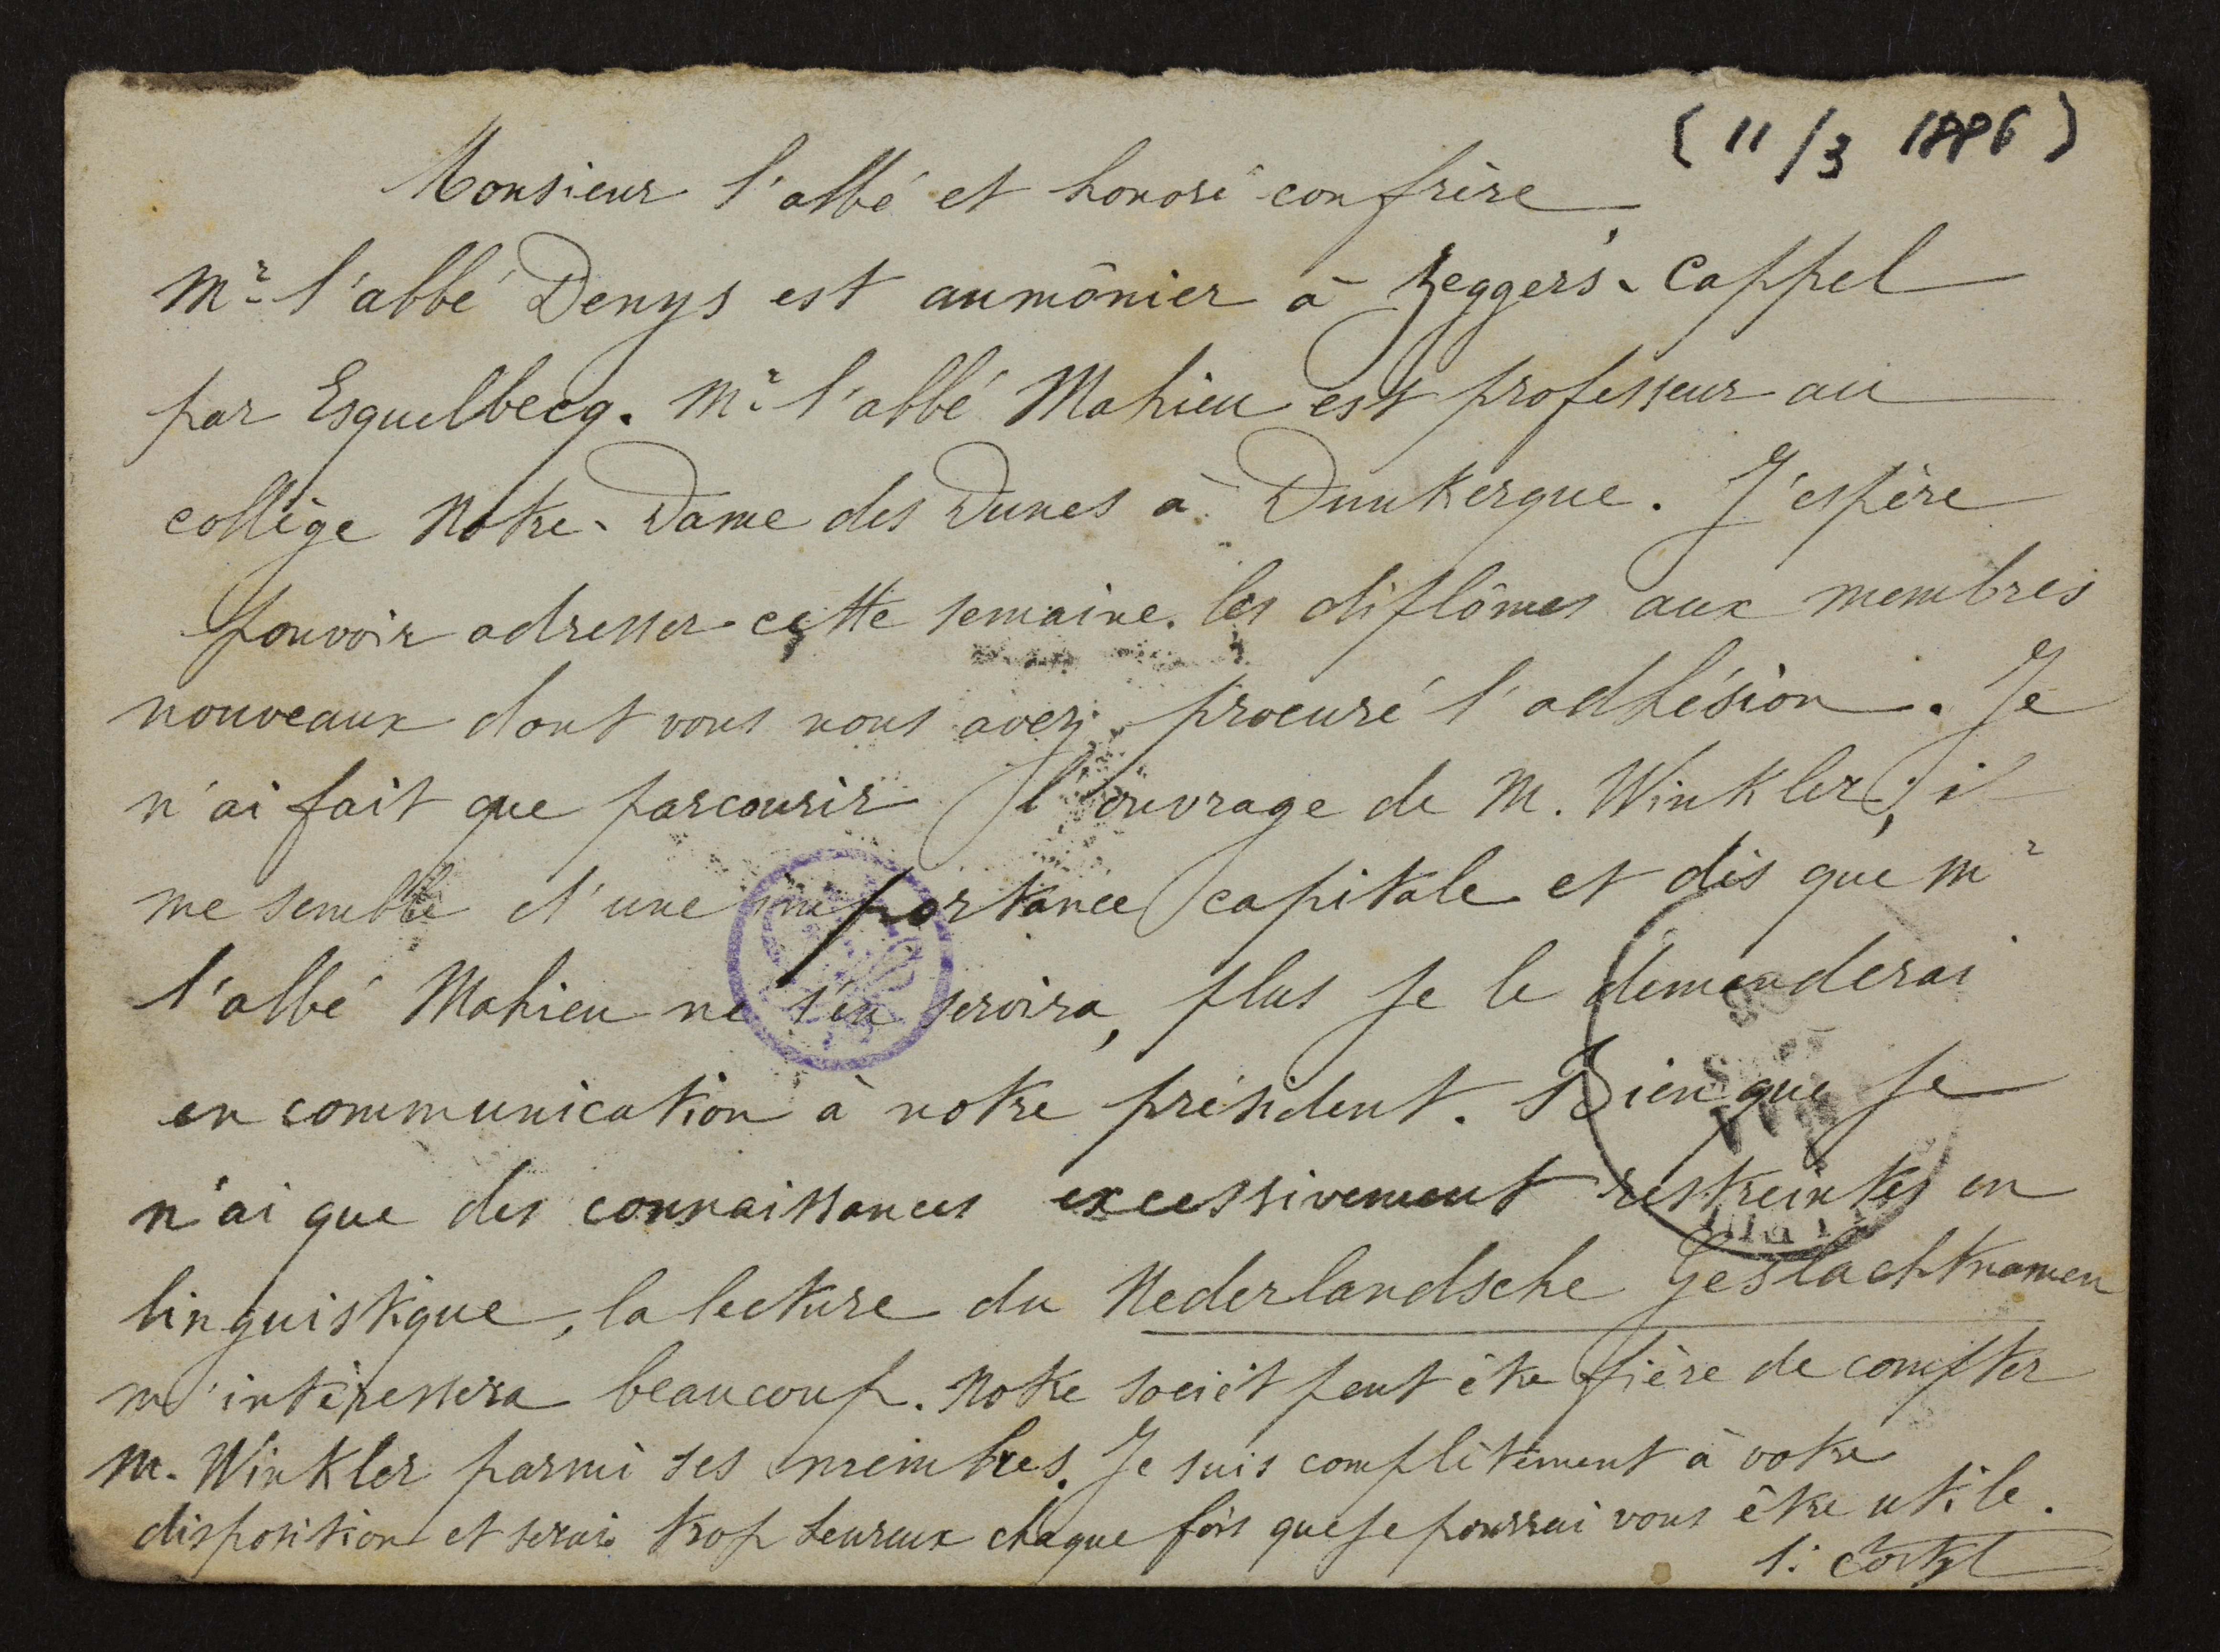 (11/3 1886)
Monsieur l'abbé et honoré confrère,
Mr l'abbé Denys est aumônier à Zeggers-Cappel
par Esquelbecq. Mr l'abbé Mahieu est professeur au
collège Notre-Dame des Dunes à Dunkerque. J'espère
pouvoir adresser cette semaine les diplômes aux membres
nouveaux dont vous nous avez procuré l'adhésion. Je
n'ai fait que parcourir l'ouvrage de M. Winkler; il
me semble d'une importance capitale et dès que Mr
l'abbé Mahieu ne s'en servira, plus je le demanderai
en communication à notre président. Bien que je
n'ai que des connaissances excessivement restreintes en
linguistique, la lecture du Nederlandsche Geslachtnamen
m'intéressera beaucoup. Notre sociét peut être fière de compter
M. Winkler parmi ses membres. Je suis complètement à votre
disposition et serai trop heureux chaque fois que je pourrai vous être utile.